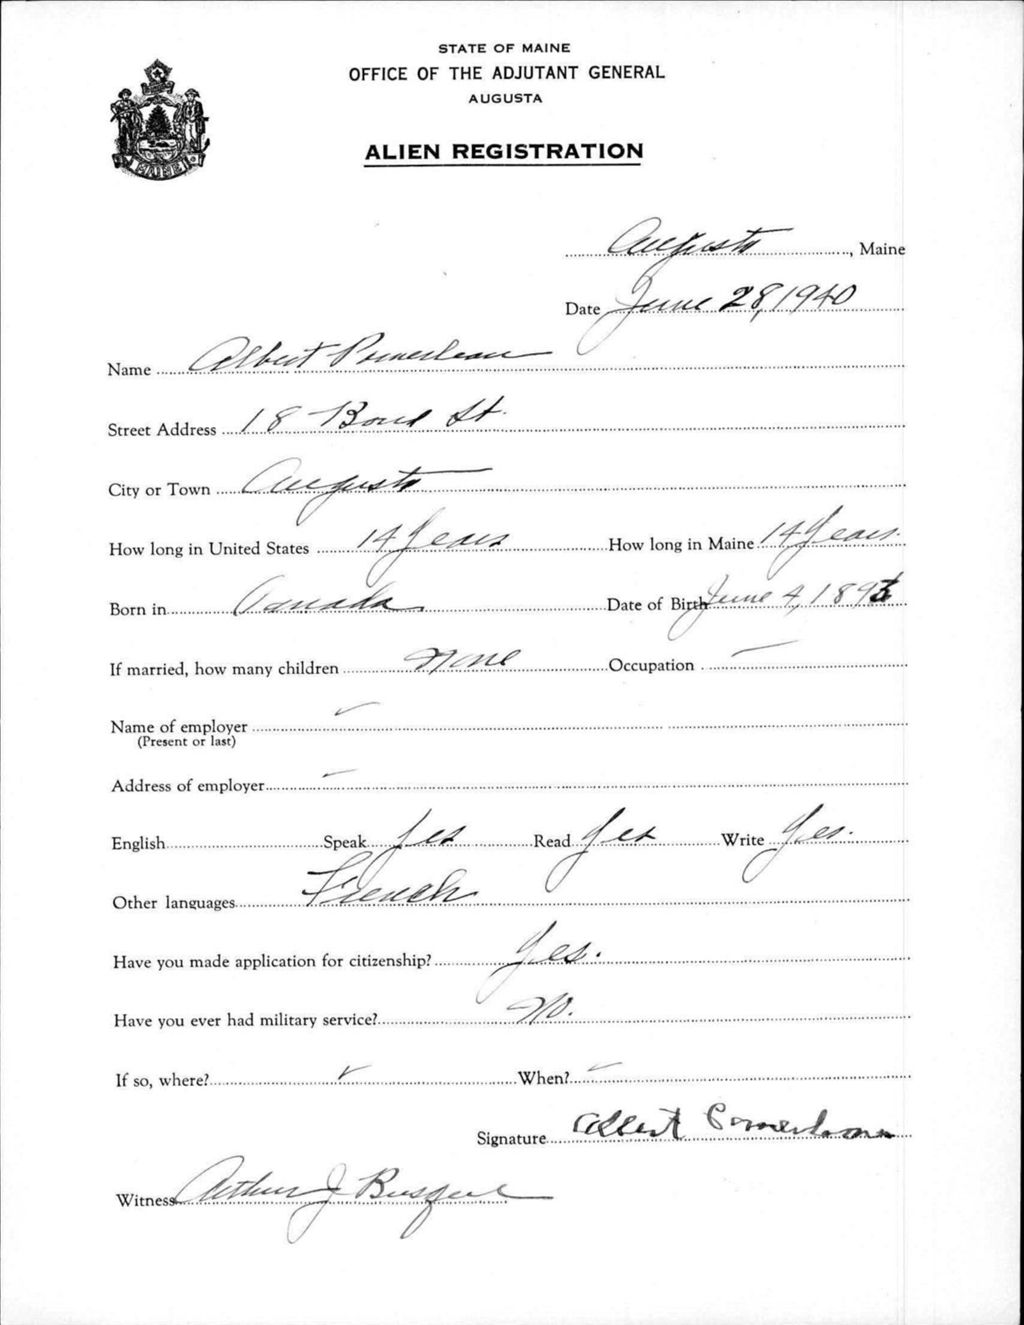 STATE OF MAINE
OFFICE OF THE ADJUTANT GENERAL
AUGUSTA
ALIEN REGISTRATION
MAINE
Augusta, Maine
Date June 28, 1940
Name Albert Pomerleau
Street Address 18 Bond St.
City or Town Augusta
How long in United States 14 Years How long in Maine 14 Years.
Born in Canada Date of Birth June 4, 1893
If married, how many children None Occupation —
Name of employer
(Present or last)
Address of employer
English Speak Yes Read Yes Write Yes.
Other languages French
Have you made application for citizenship? Yes.
Have you ever had military service? No.
If so, where? When?
Signature Albert Pomerleau
Witness Arthur J